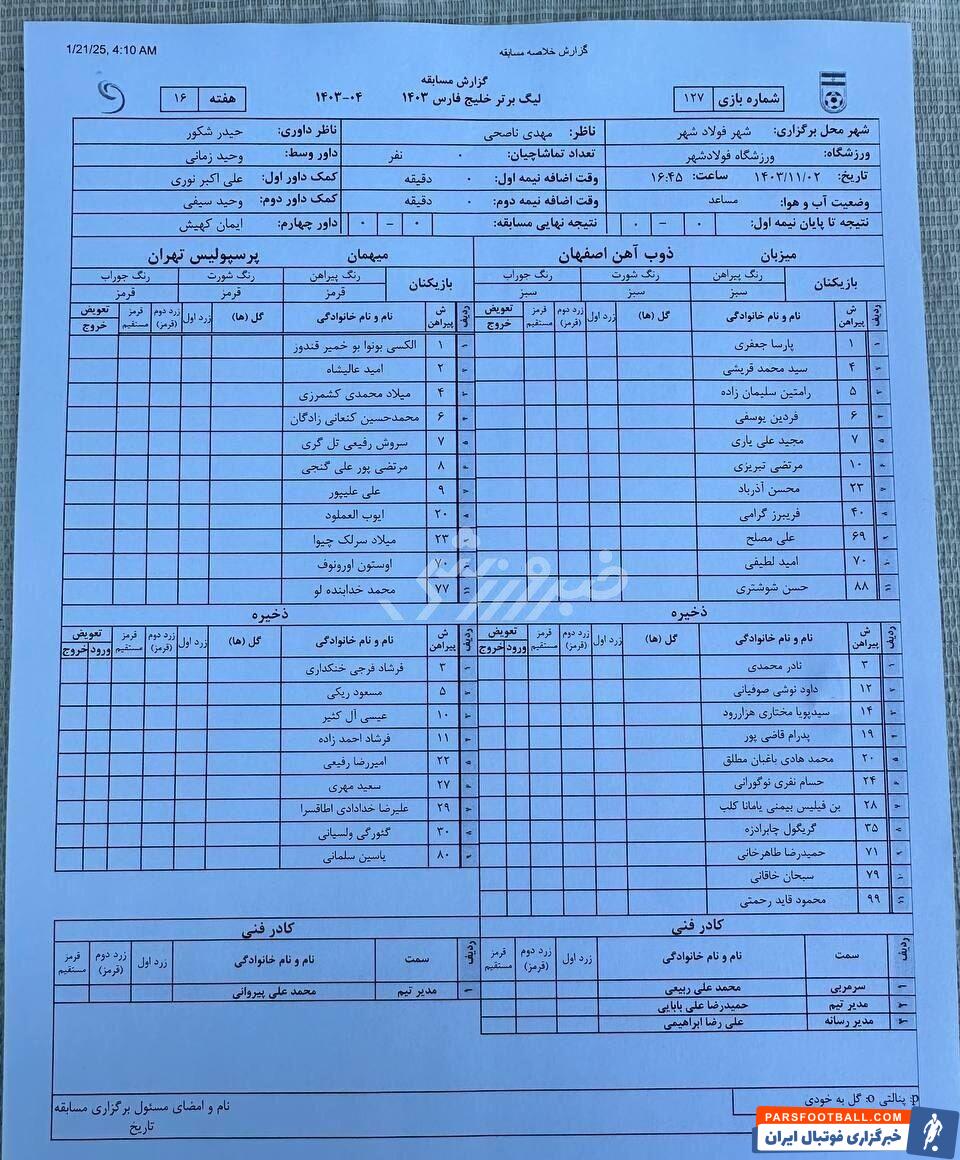 1/21/25, 4:10 AM
گزارش خلاصه مسابقه
گزارش مسابقه
شماره بازی ۱۲۷
لیگ برتر خلیج فارس ۱۴۰۳ ۱۴۰۳-۰۴
هفته ۱۶
شهر محل برگزاری: شهر فولاد شهر ناظر: مهدی ناصحی ناظر داوری: حیدر شکور
ورزشگاه: ورزشگاه فولادشهر تعداد تماشاچیان: ۰ نفر داور وسط: وحید زمانی
تاریخ: ۱۴۰۳/۱۱/۰۲ ساعت: ۱۶:۴۵ وقت اضافه نیمه اول: ۰ دقیقه کمک داور اول: علی اکبر نوری
وضعیت آب و هوا: مساعد وقت اضافه نیمه دوم: ۰ دقیقه کمک داور دوم: وحید سیفی
نتیجه تا پایان نیمه اول: ۰ - ۰ نتیجه نهایی مسابقه: ۰ - ۰ داور چهارم: ایمان کهیش
میزبان ذوب آهن اصفهان
بازیکنان رنگ پیراهن رنگ شورت رنگ جوراب
سبز سبز سبز
ردیف ش پیراهن نام و نام خانوادگی گل (ها) زرد اول زرد دوم (قرمز) قرمز مستقیم تعویض خروج
۱ ۱ پارسا جعفری
۲ ۴ سید محمد قریشی
۳ ۵ رامتین سلیمان زاده
۴ ۶ فردین یوسفی
۵ ۷ مجید علی یاری
۶ ۱۰ مرتضی تبریزی
۷ ۲۳ محسن آذرباد
۸ ۴۰ فریبرز گرامی
۹ ۶۹ علی مصلح
۱۰ ۷۰ امید لطیفی
۱۱ ۸۸ حسن شوشتری
ذخیره
ردیف ش پیراهن نام و نام خانوادگی گل (ها) زرد اول زرد دوم (قرمز) قرمز مستقیم تعویض ورود خروج
۱ ۳ نادر محمدی
۲ ۱۲ داود نوشی صوفیانی
۳ ۱۴ سیدپویا مختاری هزاررود
۴ ۱۹ پدرام قاضی پور
۵ ۲۰ محمد هادی باغبان مطلق
۶ ۲۴ حسام نفری نوگورانی
۷ ۲۸ بن فیلیس بیمنی یامانا کلب
۸ ۳۵ گریگول چابرادزه
۹ ۷۱ حمیدرضا طاهرخانی
۱۰ ۷۹ سبحان خاقانی
۱۱ ۹۹ محمود قاید رحمتی
کادر فنی
ردیف سمت نام و نام خانوادگی زرد اول زرد دوم (قرمز) قرمز مستقیم
۱ سرمربی محمد علی ربیعی
۲ مدیر تیم حمیدرضا علی بابایی
۳ مدیر رسانه علی رضا ابراهیمی
میهمان پرسپولیس تهران
بازیکنان رنگ پیراهن رنگ شورت رنگ جوراب
قرمز قرمز قرمز
ردیف ش پیراهن نام و نام خانوادگی گل (ها) زرد اول زرد دوم (قرمز) قرمز مستقیم تعویض خروج
۱ ۱ الکسی بونوا بو خمیر قندوز
۲ ۲ امید عالیشاه
۳ ۴ میلاد محمدی کشمرزی
۴ ۶ محمدحسین کنعانی زادگان
۵ ۷ سروش رفیعی تل گری
۶ ۸ مرتضی پور علی گنجی
۷ ۹ علی علیپور
۸ ۲۰ ایوب العملود
۹ ۲۳ میلاد سرلک چیوا
۱۰ ۷۰ اوستون اورونوف
۱۱ ۷۷ محمد خدابنده لو
ذخیره
ردیف ش پیراهن نام و نام خانوادگی گل (ها) زرد اول زرد دوم (قرمز) قرمز مستقیم تعویض ورود خروج
۱ ۳ فرشاد فرجی خنکداری
۲ ۵ مسعود ریکی
۳ ۱۰ عیسی آل کثیر
۴ ۱۱ فرشاد احمد زاده
۵ ۲۲ امیررضا رفیعی
۶ ۲۷ سعید مهری
۷ ۲۹ علیرضا خدادادی اطاقسرا
۸ ۳۰ گئورگی ولسیانی
۹ ۸۰ یاسین سلمانی
کادر فنی
ردیف سمت نام و نام خانوادگی زرد اول زرد دوم (قرمز) قرمز مستقیم
۱ مدیر تیم محمد علی پیروانی
p: پنالتی o: گل به خودی
نام و امضای مسئول برگزاری مسابقه
تاریخ
خبرورزشی
PARSFOOTBALL.COM
خبرگزاری فوتبال ایران